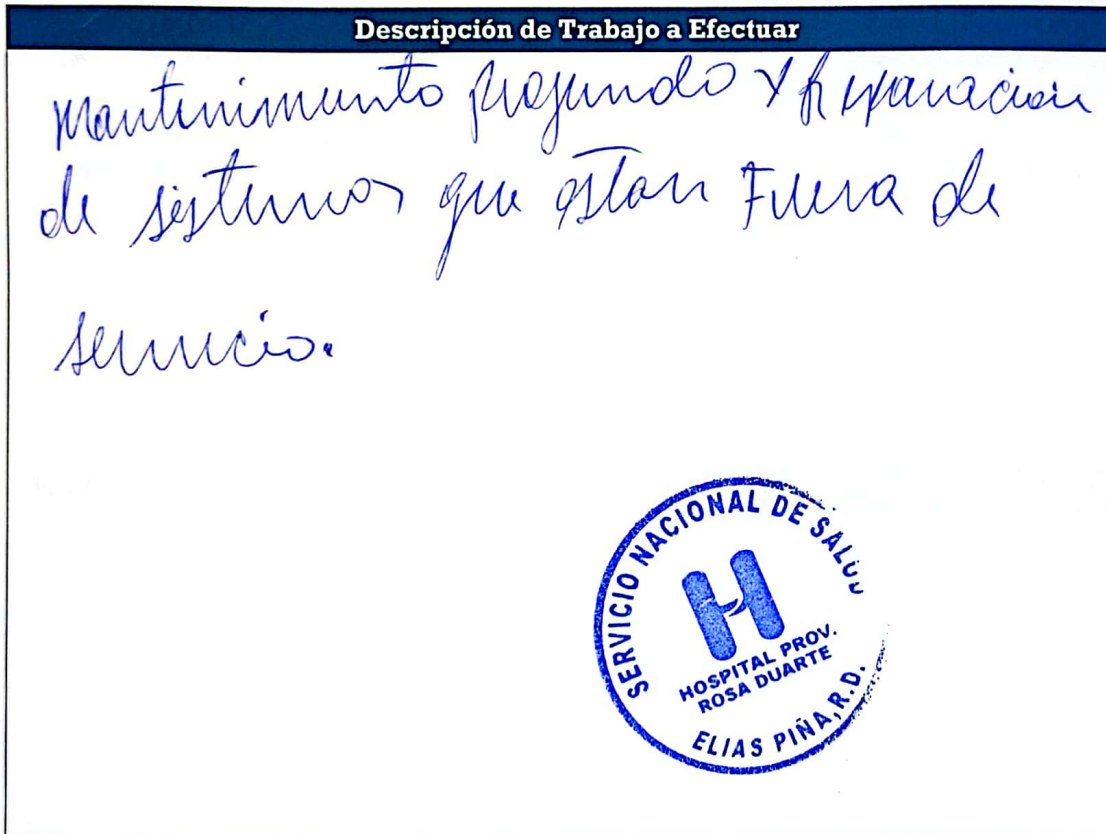 Descripción de Trabajo a Efectuar
Mantenimiento profundo y Reparacion
de sistemas que estan Fuera de
servicio.
SERVICIO NACIONAL DE SALUD
HOSPITAL PROV.
ROSA DUARTE
ELIAS PIÑA, R.D.